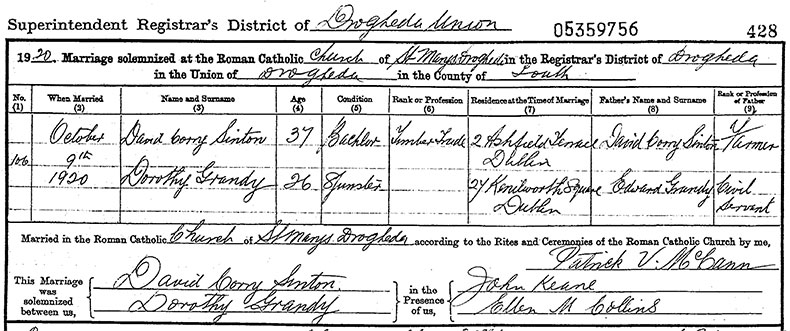 Superintendent Registrar's District of Drogheda Union 05359756 428
1920. Marriage solemnized at the Roman Catholic Church of St Marys Drogheda in the Registrar's District of Drogheda
in the Union of Drogheda in the County of Louth
No. (1) When Married (2) Name and Surname (3) Age (4) Condition (5) Rank or Profession (6) Residence at the Time of Marriage (7) Father's Name and Surname (8) Rank or Profession of Father (9)
October David Corry Sinton 37 Bachlor Timber Trade 2 Ashfield Terrace David Corry Sinton Farmer
106 9th Dublin
1920 Dorothy Grandy 26 Spinster 27 Kenilworth Square Edward Grandy Civil
Dublin Servant
Married in the Roman Catholic Church of St Marys Drogheda according to the Rites and Ceremonies of the Roman Catholic Church by me,
Patrick V. McCann
This Marriage was solemnized between us, David Corry Sinton. in the Presence of us, John Keane
Dorothy Grandy Ellen M Collins